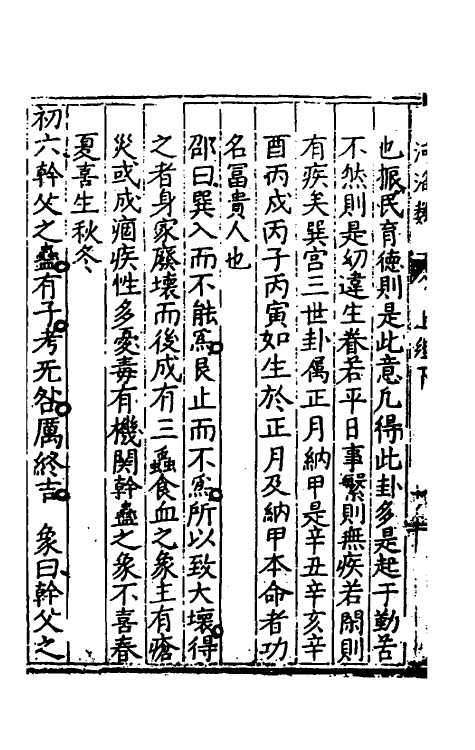 也振民育德則是此意凡得此卦多是起于勤苦
不然則是幼違生眷若平日事繁則無疾若閑則
有疾矣巽宮三世卦属正月納甲是辛丑辛亥辛
酉丙戌丙子丙寅如生於正月及納甲本命者功
名富貴人也
邵曰巽入而不能寫艮止而不寫所以致大壞得
之者身家廢壞而後成有三蟲食血之象主有瘡
災或成痼疾性多憂毒有機関幹蠱之象不喜春
夏喜生秋冬
初六幹父之蠱有子考无咎厲終吉 象曰幹父之